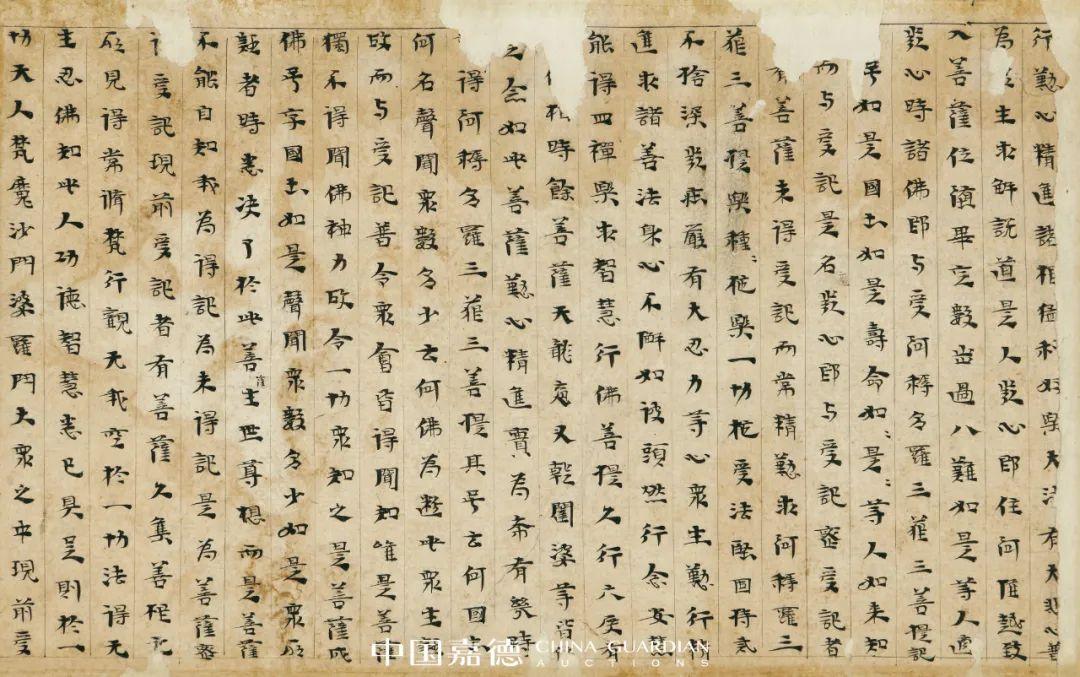 行勤心精進諸根猛利好樂大法有大悲心普
為生求解說道是人發心即住阿惟越致
入菩薩位墮畢定數出過八難如是等人適
發心時諸佛即与受阿耨多羅三藐三菩提記
号如是國土如是壽命如〻是〻等人如來知
而与受記是名發心即与受記蜜受記者
有菩薩未得受記而常精勤求阿耨羅三
藐三菩提樂種〻施樂一切施受法堅固持戒
不捨深發莊嚴有大忍力等心眾生勤行精
進求諸善法身心不懈如救頭然行念安慧
能得四禪樂求智慧行佛菩提久行六度有
相時餘菩薩天龍夜叉乾闥婆等皆
之念如此菩薩懃心精進實為希有幾時
得阿耨多羅三藐三菩提其号云何國土
何名聲聞眾數多少云何佛為斷此眾生
故而与受記普令眾會皆得聞知唯是菩
獨不得聞佛神力故令一切眾知之是菩薩成
佛号字國土如是聲聞眾數多少如是眾所
疑者時悉決了於此菩薩生世尊想而是菩薩
不能自知我為得記為未得記是為菩薩密
受記現前受記者有菩薩久集善根无
見得常脩梵行觀无我空於一切法得无
生忍佛知此人功德智慧悉已具足則於一
切天人梵魔沙門婆羅門大眾之中現前受
中国嘉德 CHINA GUARDIAN
AUCTIONS